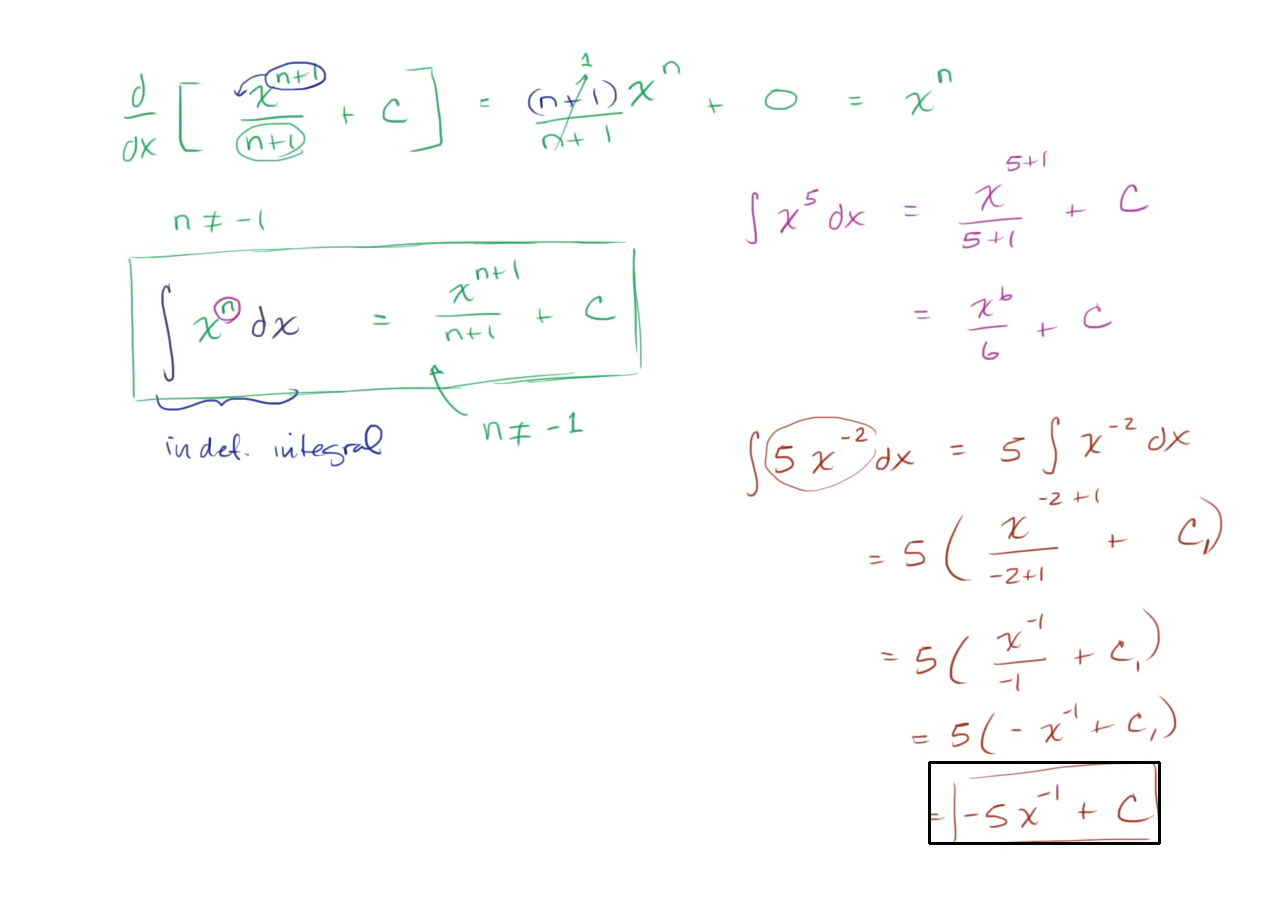 d/dx [ x^(n+1)/(n+1) + C ] = (n+1)x^n/(n+1) 1 + 0 = x^n
n ≠ -1
∫ x^n dx = x^(n+1)/(n+1) + C
n ≠ -1
indef. integral
∫ x^5 dx = x^(5+1)/(5+1) + C
= x^6/6 + C
∫ 5 x^(-2) dx = 5 ∫ x^(-2) dx
= 5 ( x^(-2+1)/(-2+1) + C₁)
= 5 ( x^(-1)/(-1) + C₁)
= 5 ( - x^(-1) + C₁)
= -5x^(-1) + C